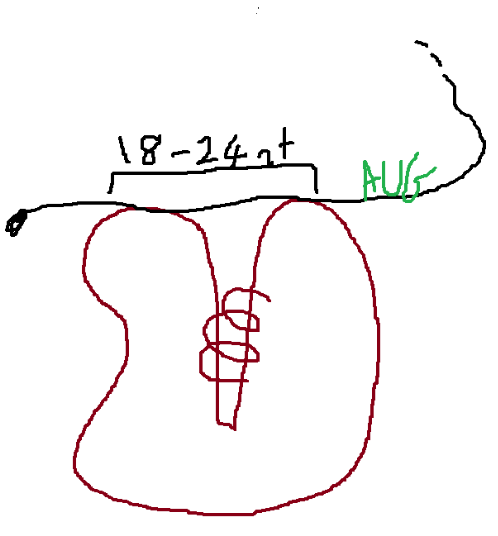 18-24nt
AUG